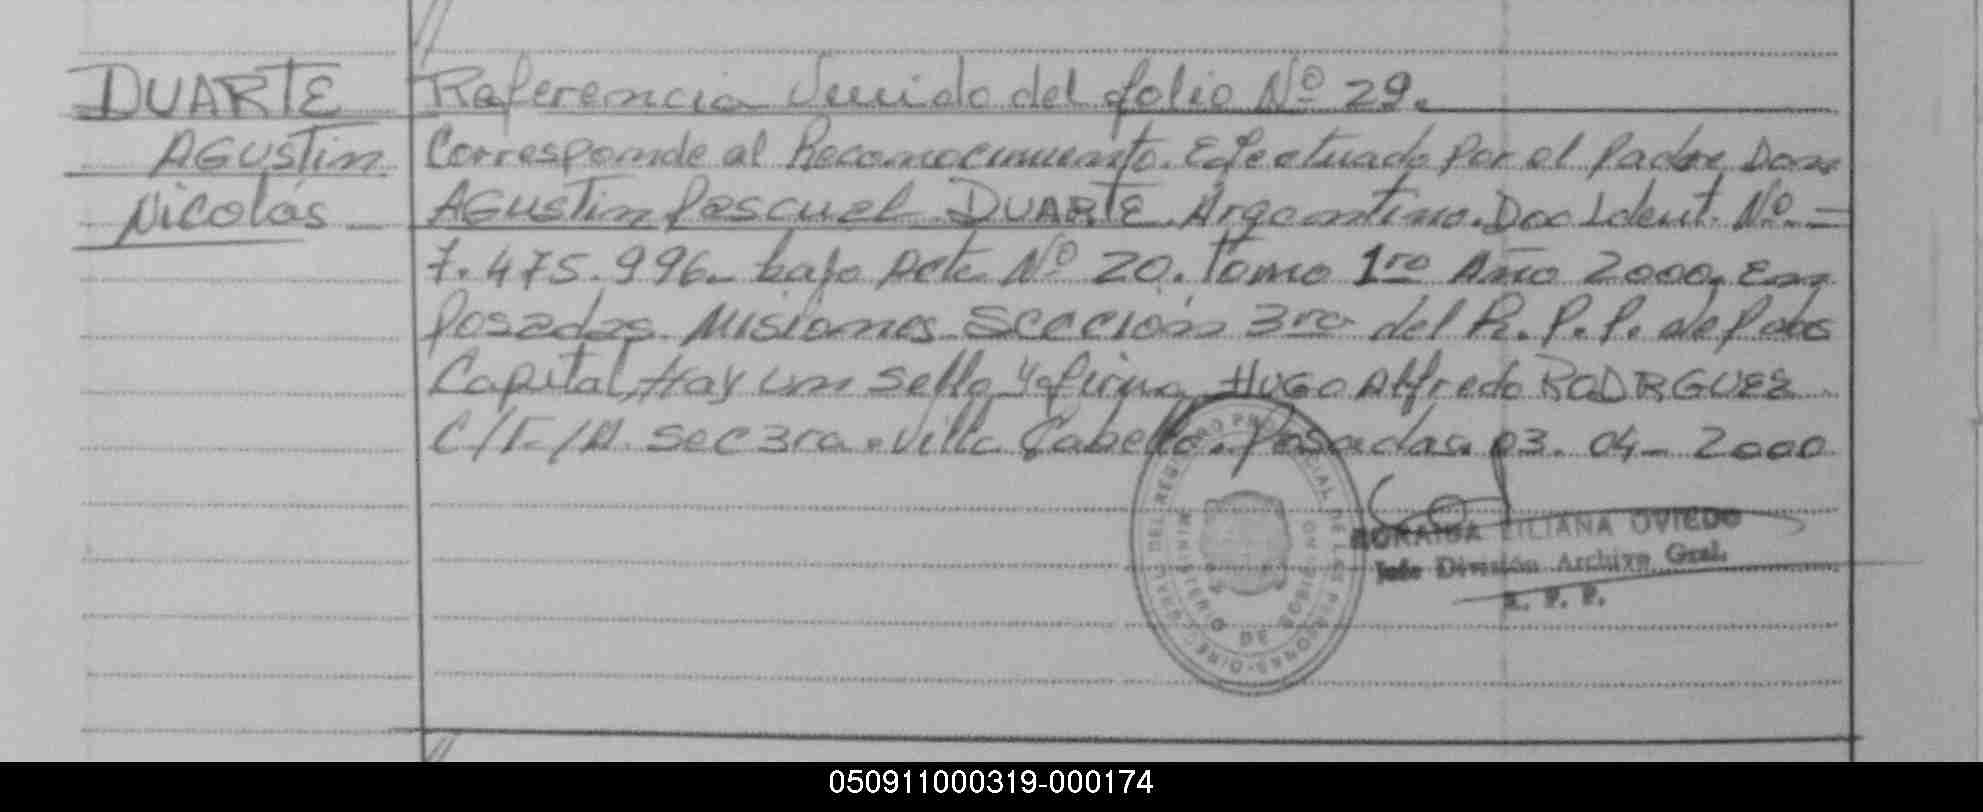 DUARTE Referencia Venido del folio Nº 29.
AGUSTin Corresponde al Reconocimiento. Efectuado Por el Padre Don
Nicolás AGUSTin Pascual DUARTE. Argentino. Doc Ident. Nº =
7.475.996.- bajo Acta Nº 20. Tomo 1ro Año 2000. En
Posadas Misiones Sección 3ra del R.P.P. de Pdas
Capital, Hay un Sello y firma HUGO Alfredo RODRGUEZ
C/I./A. Sec 3ra. Villa Cabello. Posadas 03. 04- 2000
LILIANA OVIEDO
Jefe División Archivo Gral.
R. P. P.
DIREC. GRAL. DEL REGISTRO PROVINCIAL DE LAS PERSONAS
MINISTERIO DE GOBIERNO
050911000319-000174